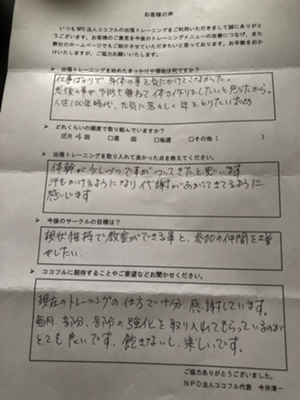 お客様の声
いつもNPO法人ココフルの出張トレーニングをご利用いただきまして誠にありがとう
ございます。お客様のご意見を今後のトレーニングメニューの改善につなげ、また
弊社のホームページでもご紹介させていただきたいと思っております。お手数をおかけ
いたしますが、ご協力お願いします。
➢ 出張トレーニングを始めたきっかけや理由は何ですか?
仕事ばかりで、身体の事を気にかけてこなかった。
老後の事や、予防も兼ねて体力作りをしたいと思ったから。
人生100年時代、元気に若々しく年をとりたいため
➢ どれくらいの頻度で取り組んでいますか?
月4回 □週 回 □毎週 □その他( )
➢ 出張トレーニングを取り入れて良かった点を教えてください。
体幹が少しづつですがついてきたと思います
汗もかけるようになり代謝があがってきてるように
感じます
➢ 今後のサークルの目標は?
現状維持で教室ができる事と、参加の仲間を増
やしたい。
➢ ココフルに期待することやご要望などお聞かせください。
現在のトレーニングの仕方で十分、感謝しています。
毎月、部分、部分の強化を取り入れてもらっているのが
とても良いです。飽きないし、楽しいです。
ご協力ありがとうございました。
NPO法人ココフル代表 今井淳一